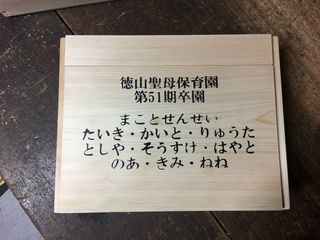 徳山聖母保育園
第51期卒園
まことせんせい
たいき・かいと・りゅうた
としや・そうすけ・はやと
のあ・きみ・ねね